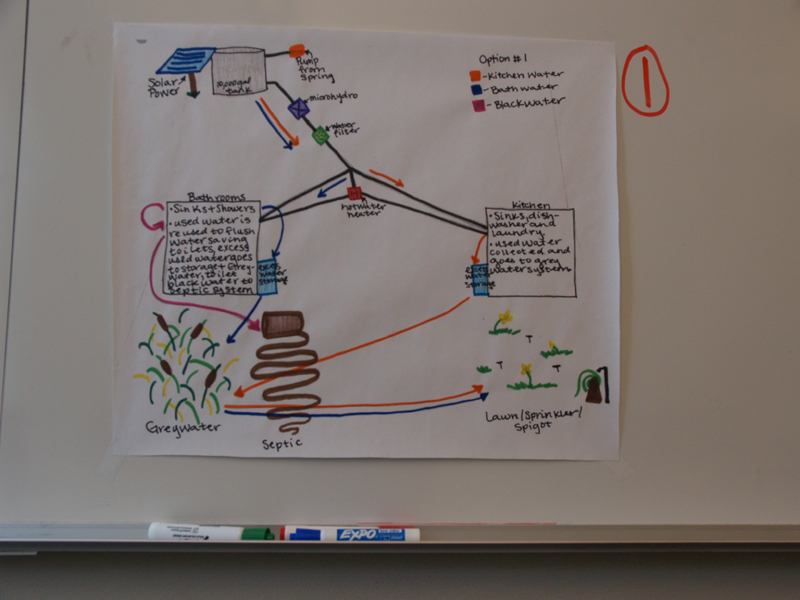 Solar
Power
10,000gal
tank
Pump
from
Spring
microhydro
water
filter
Option #1
- Kitchen Water
- Bath water
- Blackwater
1
Bathrooms
• Sinks + Showers
• used water is
reused to flush
water saving
toilets, excess
used water goes
to storage + Grey-
water, toilet
black water to
septic system
hotwater
heater
Kitchen
• Sinks, dish-
washer and
laundry
• used water
collected and
goes to grey
water system
water
storage
water
storage
Greywater
Septic
Lawn/Sprinkler/
Spigot
EXPO